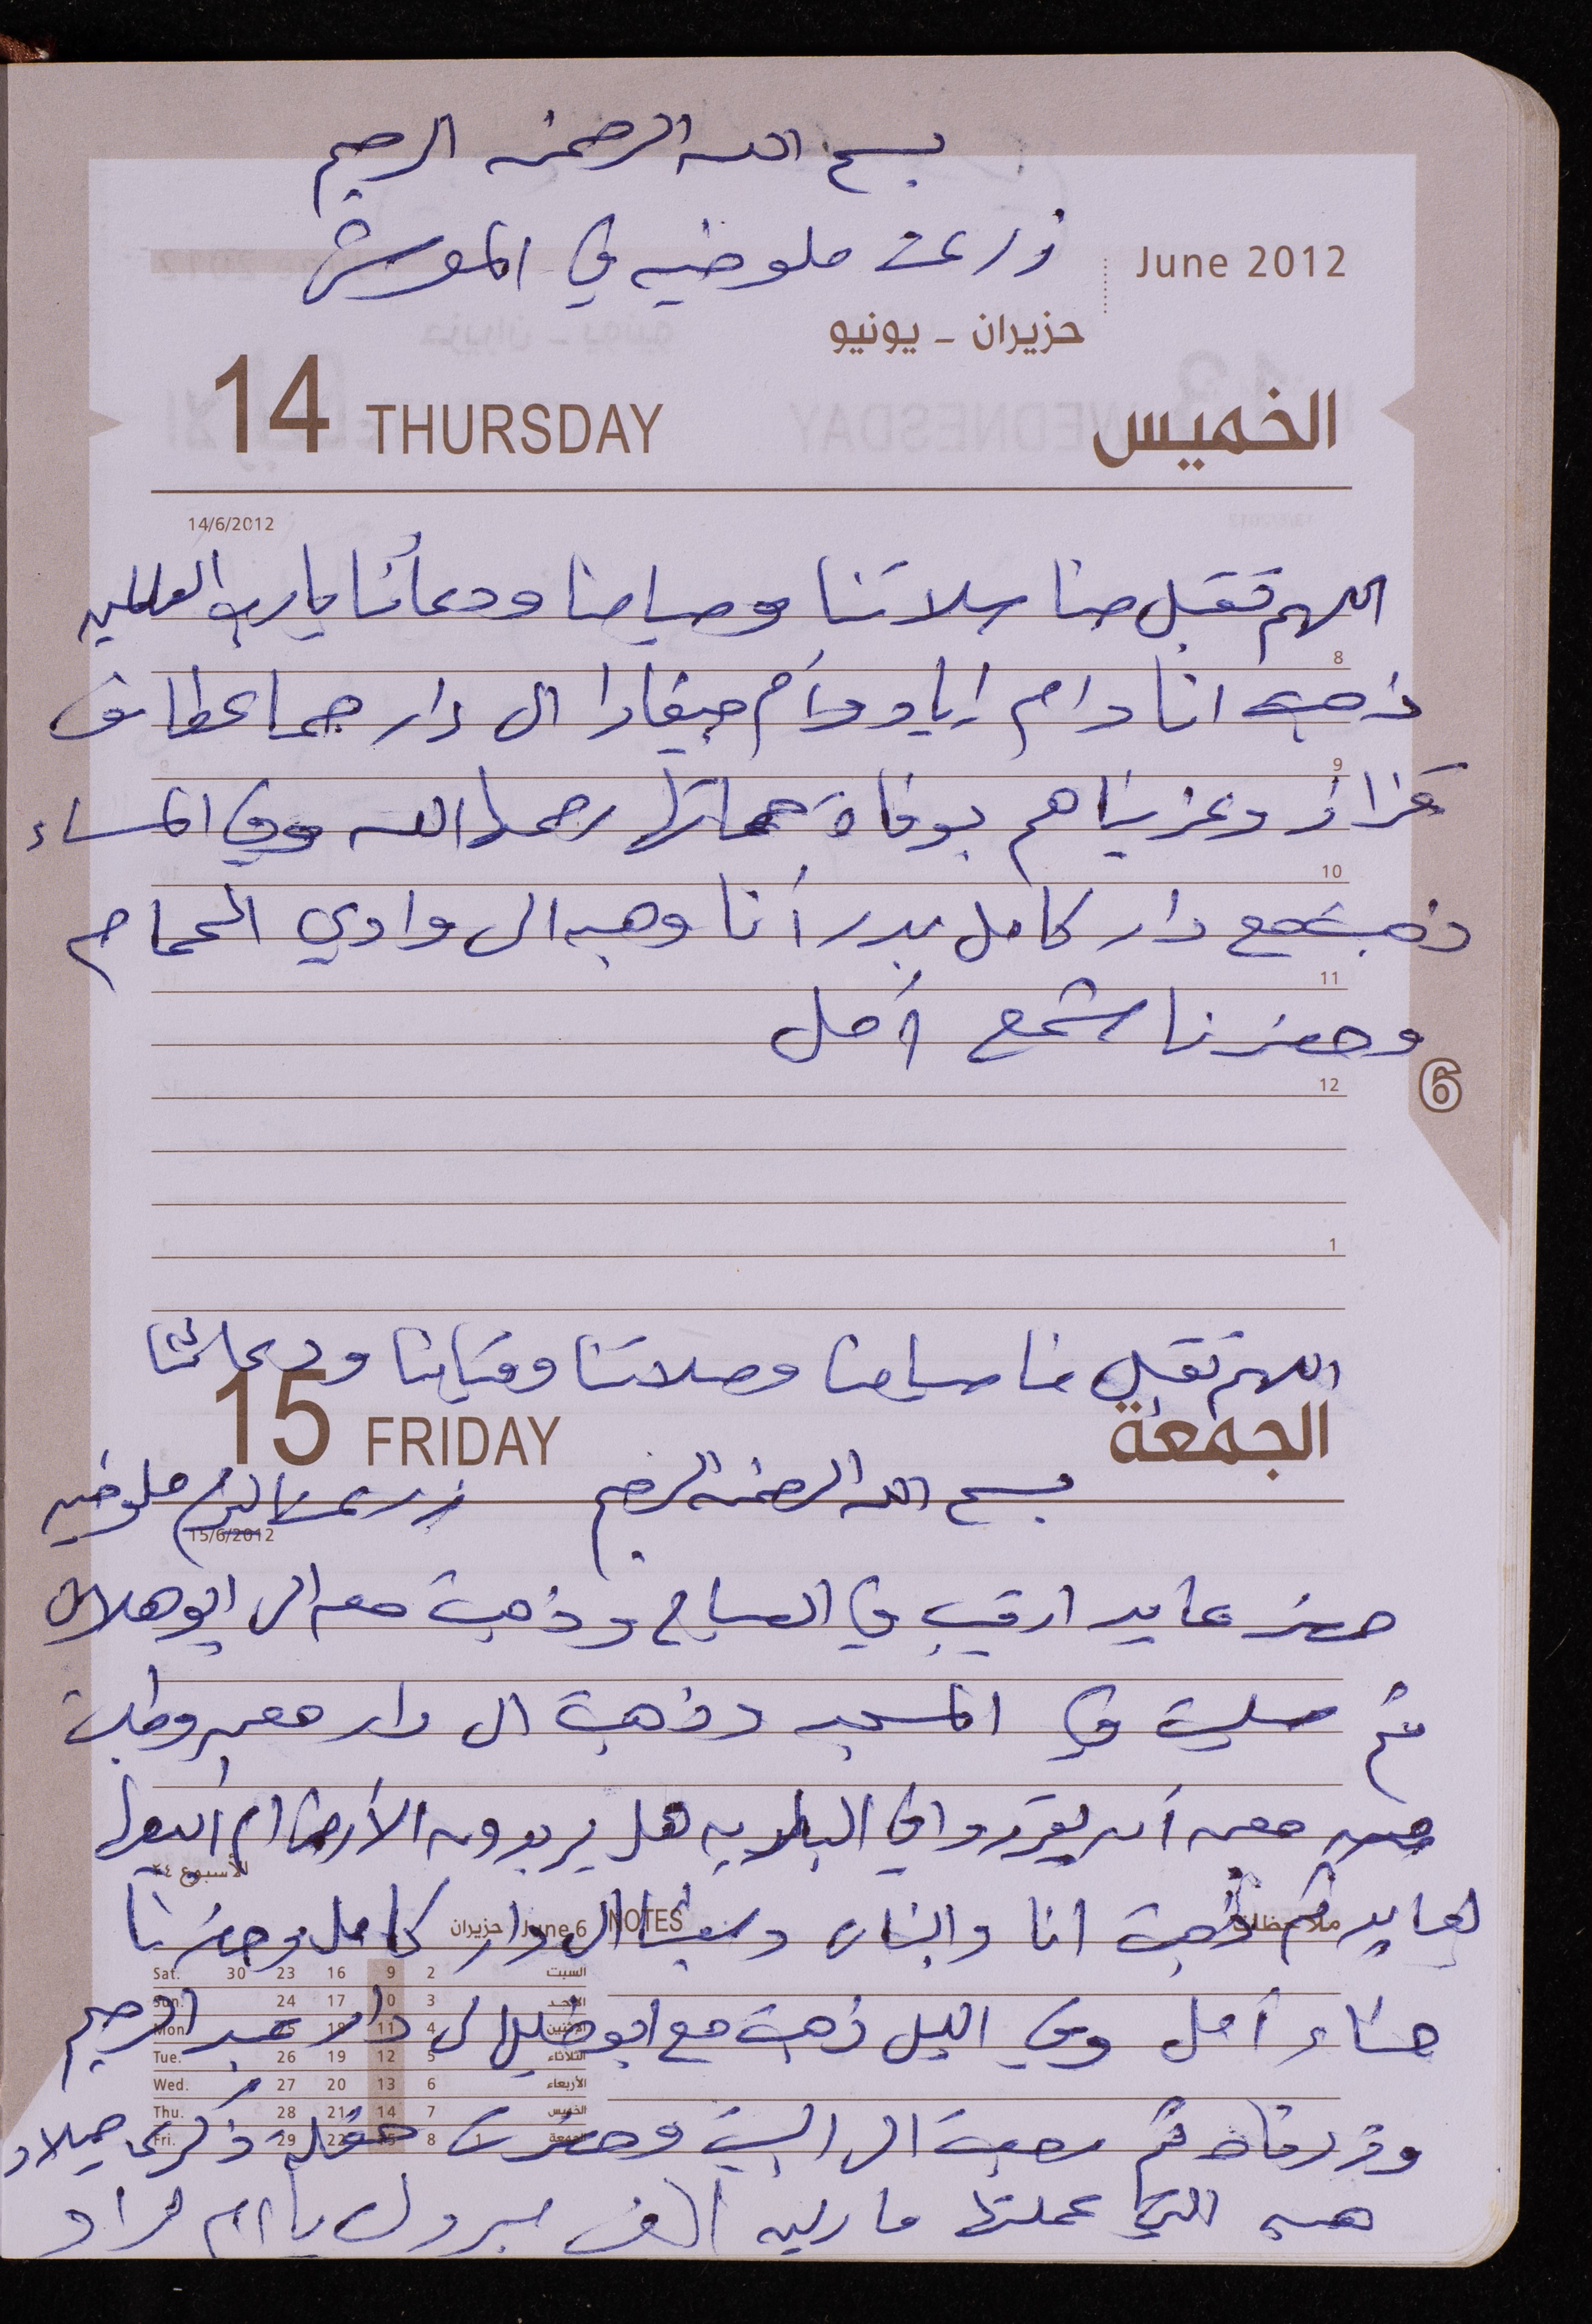 بسم الله الرحمن الرحيم
زرعت ملوخيه في المورش
June 2012
حزيران - يونيو
14 THURSDAY الخميس
14/6/2012
اللهم تقبل منا صلاتنا وصيامنا ودعائنا يا رب العالمين
8
ذهبت انا وام اياد وأم جيفارا الى دار حما عطاف
9
وعزيناهم بوفاة حماتها رحمها الله وفي المساء
10
ذهبت مع دار كامل بدر أنا وهبه الى وادي الحمام
11
وحضرنا شمع أمل
12
6
1
اللهم تقبل منا صيامنا وصلاتنا وقيامنا ودعائنا
15 FRIDAY الجمعة
بسم الله الرحمن الرحيم زرعت اليوم ملوخيه
15/6/2012
حضر عايد ارقيب في الصباح وذهبت معه الى ابو هلال
ثم صليت في المسجد وذهبت الى دار معين وطلبت
من معين أن يقرروا في البلديه هل يريدون الأرض ام أبيعها
الأسبوع ٢٤
لعايد ثم ذهبت انا والبنات وسينا الى دار كامل وحضرنا
ملاحظات NOTES June 6 حزيران
Sat. 30 23 16 9 2 السبت
حناء أمل وفي اليل ذهبت مع ابو خليل الى دار عبد الرحيم
Sun. 24 17 10 3 الأحد
Mon. 25 18 11 4 الاثنين
Tue. 26 19 12 5 الثلاثاء
Wed. 27 20 13 6 الأربعاء
Thu. 28 21 14 7 الخميس
Fri. 29 22 15 8 1 الجمعة
ثم رجعت الى البيت وحضرت حفلة ذكرى ميلاد
هبه التي عملتها ماريه الف مبروك يا ام فراد